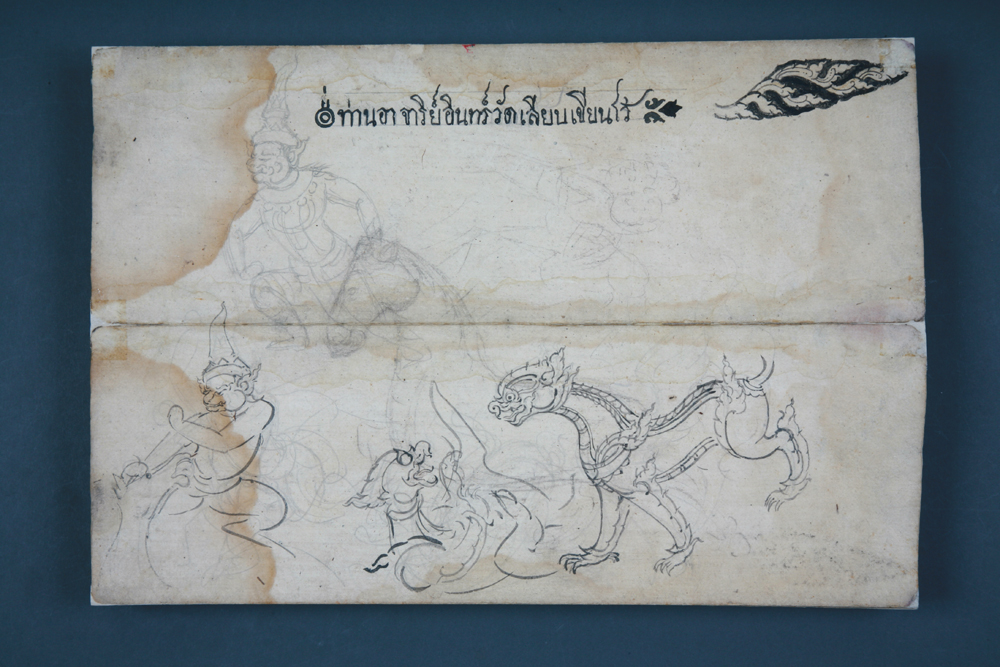 ๏่ท่านอาจาริย์อินทร์วัดเลียบเขียนไว้